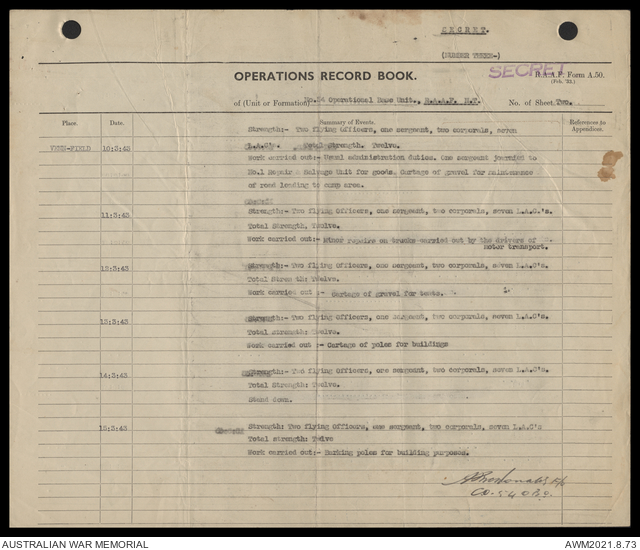 SECRET.
(NUMBER THREE-)
SECRET
OPERATIONS RECORD BOOK.
R.A.A.F. Form A.50.
(Feb. '33.)
of (Unit or Formation) No.54 Operational Base Unit., R.A.A.F. N.T.
No. of Sheet Two.
Place.
Date.
Summary of Events.
References to
Appendices.
Strength:- Two flying Officers, one sergeant, two corporals, seven
10:3:43
L.A.C's. Total Strength. Twelve.
Work carried out:- Usual administration duties. One sergeant journied to
No.1 Repair & Salvage Unit for goods. Cartage of gravel for maintenance
of road leading to camp area.
11:3:43
Strength:- Two flying Officers, one sergeant, two corporals, seven L.A.C.'s.
Total Strength, Twelve.
Work carried out:- Minor repairs on trucks carried out by the drivers of
motor transport.
12:3:43
Strength:- Two flying Officers, one sergeant, two corporals, seven L.A.C's.
Total Strength: Twelve.
Work carried out :- Cartage of gravel for tents.
13:3:43
Strength:- Two flying Officers, one sergeant, two corporals, seven L.A.C's.
Total strength: Twelve.
Work carried out :- Cartage of poles for buildings
14:3:43
Strength:- Two flying Officers, one sergeant, two corporals, seven L.A.C's.
Total Strength: Twelve.
Stand down.
15:3:43
Strength: Two flying Officers, one sergeant, two corporals, seven L.A.C's
Total strength: Twelve
Work carried out:- Barking poles for building purposes.
AUSTRALIAN WAR MEMORIAL
AWM2021.8.73